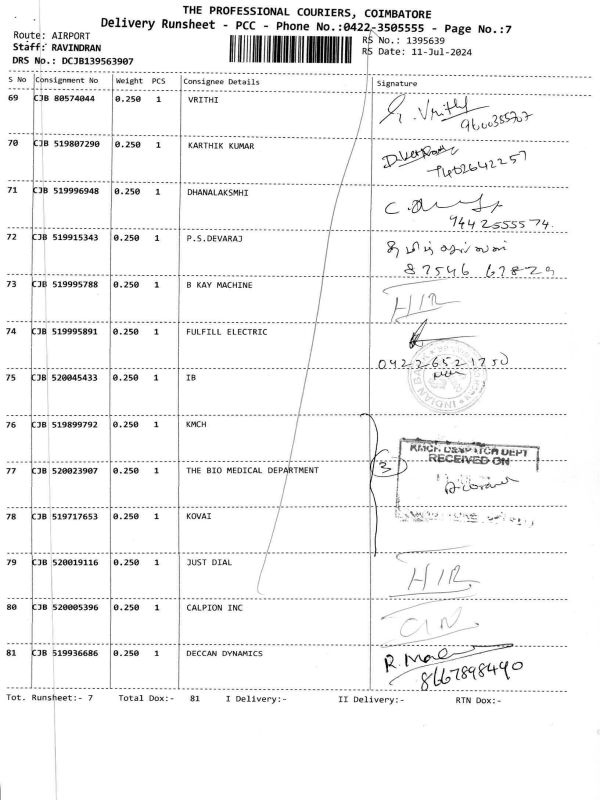 THE PROFESSIONAL COURIERS, COIMBATORE
Delivery Runsheet - PCC - Phone No.:0422-3505555 - Page No.:7
Route: AIRPORT
RS No.: 1395639
Staff: RAVINDRAN
RS Date: 11-Jul-2024
DRS No.: DCJB139563907
S No Consignment No Weight PCS Consignee Details Signature
69 CJB 80574044 0.250 1 VRITHI
Vrithi
9600355707
70 CJB 519807290 0.250 1 KARTHIK KUMAR
7402642257
71 CJB 519996948 0.250 1 DHANALAKSMHI
9442555574.
72 CJB 519915343 0.250 1 P.S.DEVARAJ
87546 67829
73 CJB 519995788 0.250 1 B KAY MACHINE
H/R
74 CJB 519995891 0.250 1 FULFILL ELECTRIC
0422 6521750
75 CJB 520045433 0.250 1 IB
INDIAN BA
76 CJB 519899792 0.250 1 KMCH
KMCH DESPATCH DEPT
RECEIVED ON
77 CJB 520023907 0.250 1 THE BIO MEDICAL DEPARTMENT
3
78 CJB 519717653 0.250 1 KOVAI
79 CJB 520019116 0.250 1 JUST DIAL
H/R
80 CJB 520005396 0.250 1 CALPION INC
81 CJB 519936686 0.250 1 DECCAN DYNAMICS
8667898490
Tot. Runsheet:- 7 Total Dox:- 81 I Delivery:- II Delivery:- RTN Dox:-